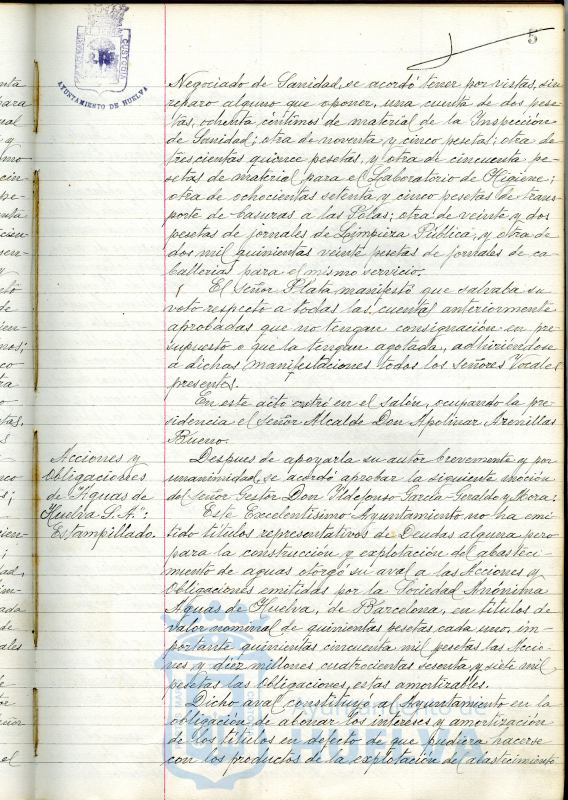 5
AYUNTAMIENTO DE HUELVA
Negociado de Sanidad, se acordó tener por vistas, sin
reparo alguno que oponer, una cuenta de dos pese-
tas, ochenta céntimos de material de la Inspección
de Sanidad; otra de noventa y cinco pesetas; otra de
trescientas quince pesetas, y otra de cincuenta pe-
setas de material para el Laboratorio de Higiene;
otra de ochocientas setenta y cinco pesetas de trans-
porte de basuras a las Polas; otra de veinte y dos
pesetas de jornales de Limpieza Pública, y otra de
dos mil quinientas veinte pesetas de jornales de ca-
ballerías para el mismo servicio.
El Señor Plata manifestó que salvaba su
voto respecto a todas las cuentas anteriormente
aprobadas que no tengan consignación en pre-
supuesto o que la tengan agotada, adhiriéndose
a dichas manifestaciones todos los señores Vocales
presentes.
En este acto entró en el salón, ocupando la pre-
sidencia el Señor Alcalde Don Apolinar Arenillas
Bueno.
Acciones y
Obligaciones
de "Aguas de
Huelva S.A":
Estampillado.
Despues de apoyarla su autor brevemente y por
unanimidad, se acordó aprobar la siguiente moción
del Señor Gestor Don Ildefonso García-Geraldo y Mora:
Este Excelentísimo Ayuntamiento no ha emi-
tido títulos representativos de Deudas alguna pero
para la construcción y explotación del abasteci-
miento de aguas otorgó su aval a las Acciones y
Obligaciones emitidas por la Sociedad Anónima
Aguas de Huelva, de Barcelona, en títulos de
valor nominal de quinientas pesetas cada uno, im-
portante quinientas cincuenta mil pesetas las Accio-
nes y diez millones cuatrocientas sesenta y siete mil
pesetas las obligaciones, estas amortizables.
Dicho aval constituye al Ayuntamiento en la
obligación de abonar los intereses y amortización
de los títulos en defecto de que pudiera hacerse
con los productos de la explotación del abastecimiento
HUELVA